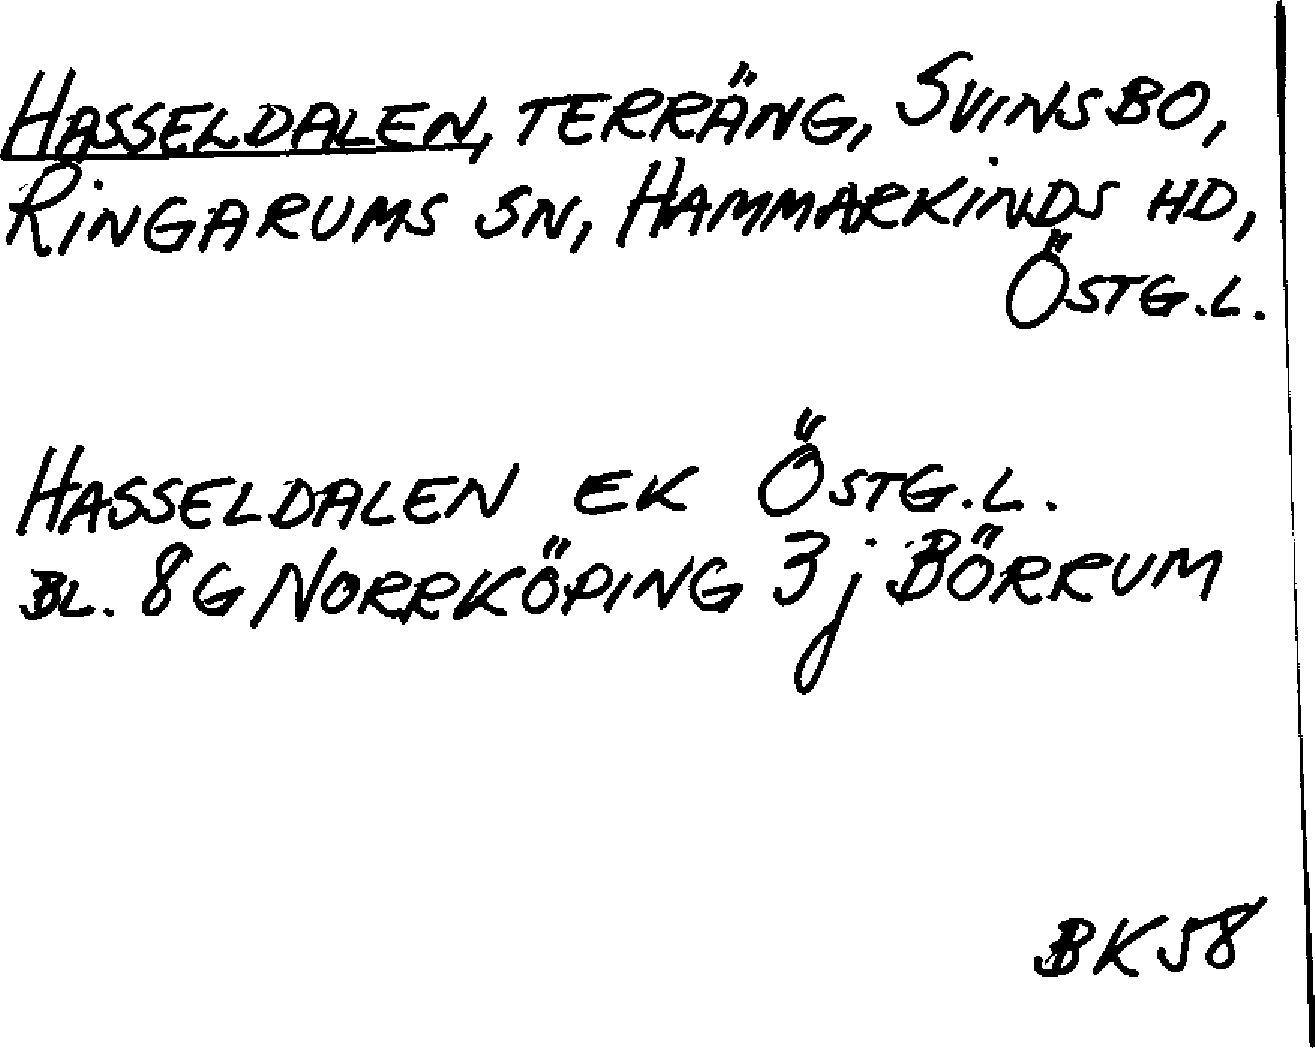 HASSELDALEN, TERRÄNG, SVINSBO,
RINGARUMS SN, HAMMARKINDS HD,
ÖSTG.L.
HASSELDALEN EK ÖSTG.L.
BL. 8G NORRKÖPING 3j BÖRRUM
BK58